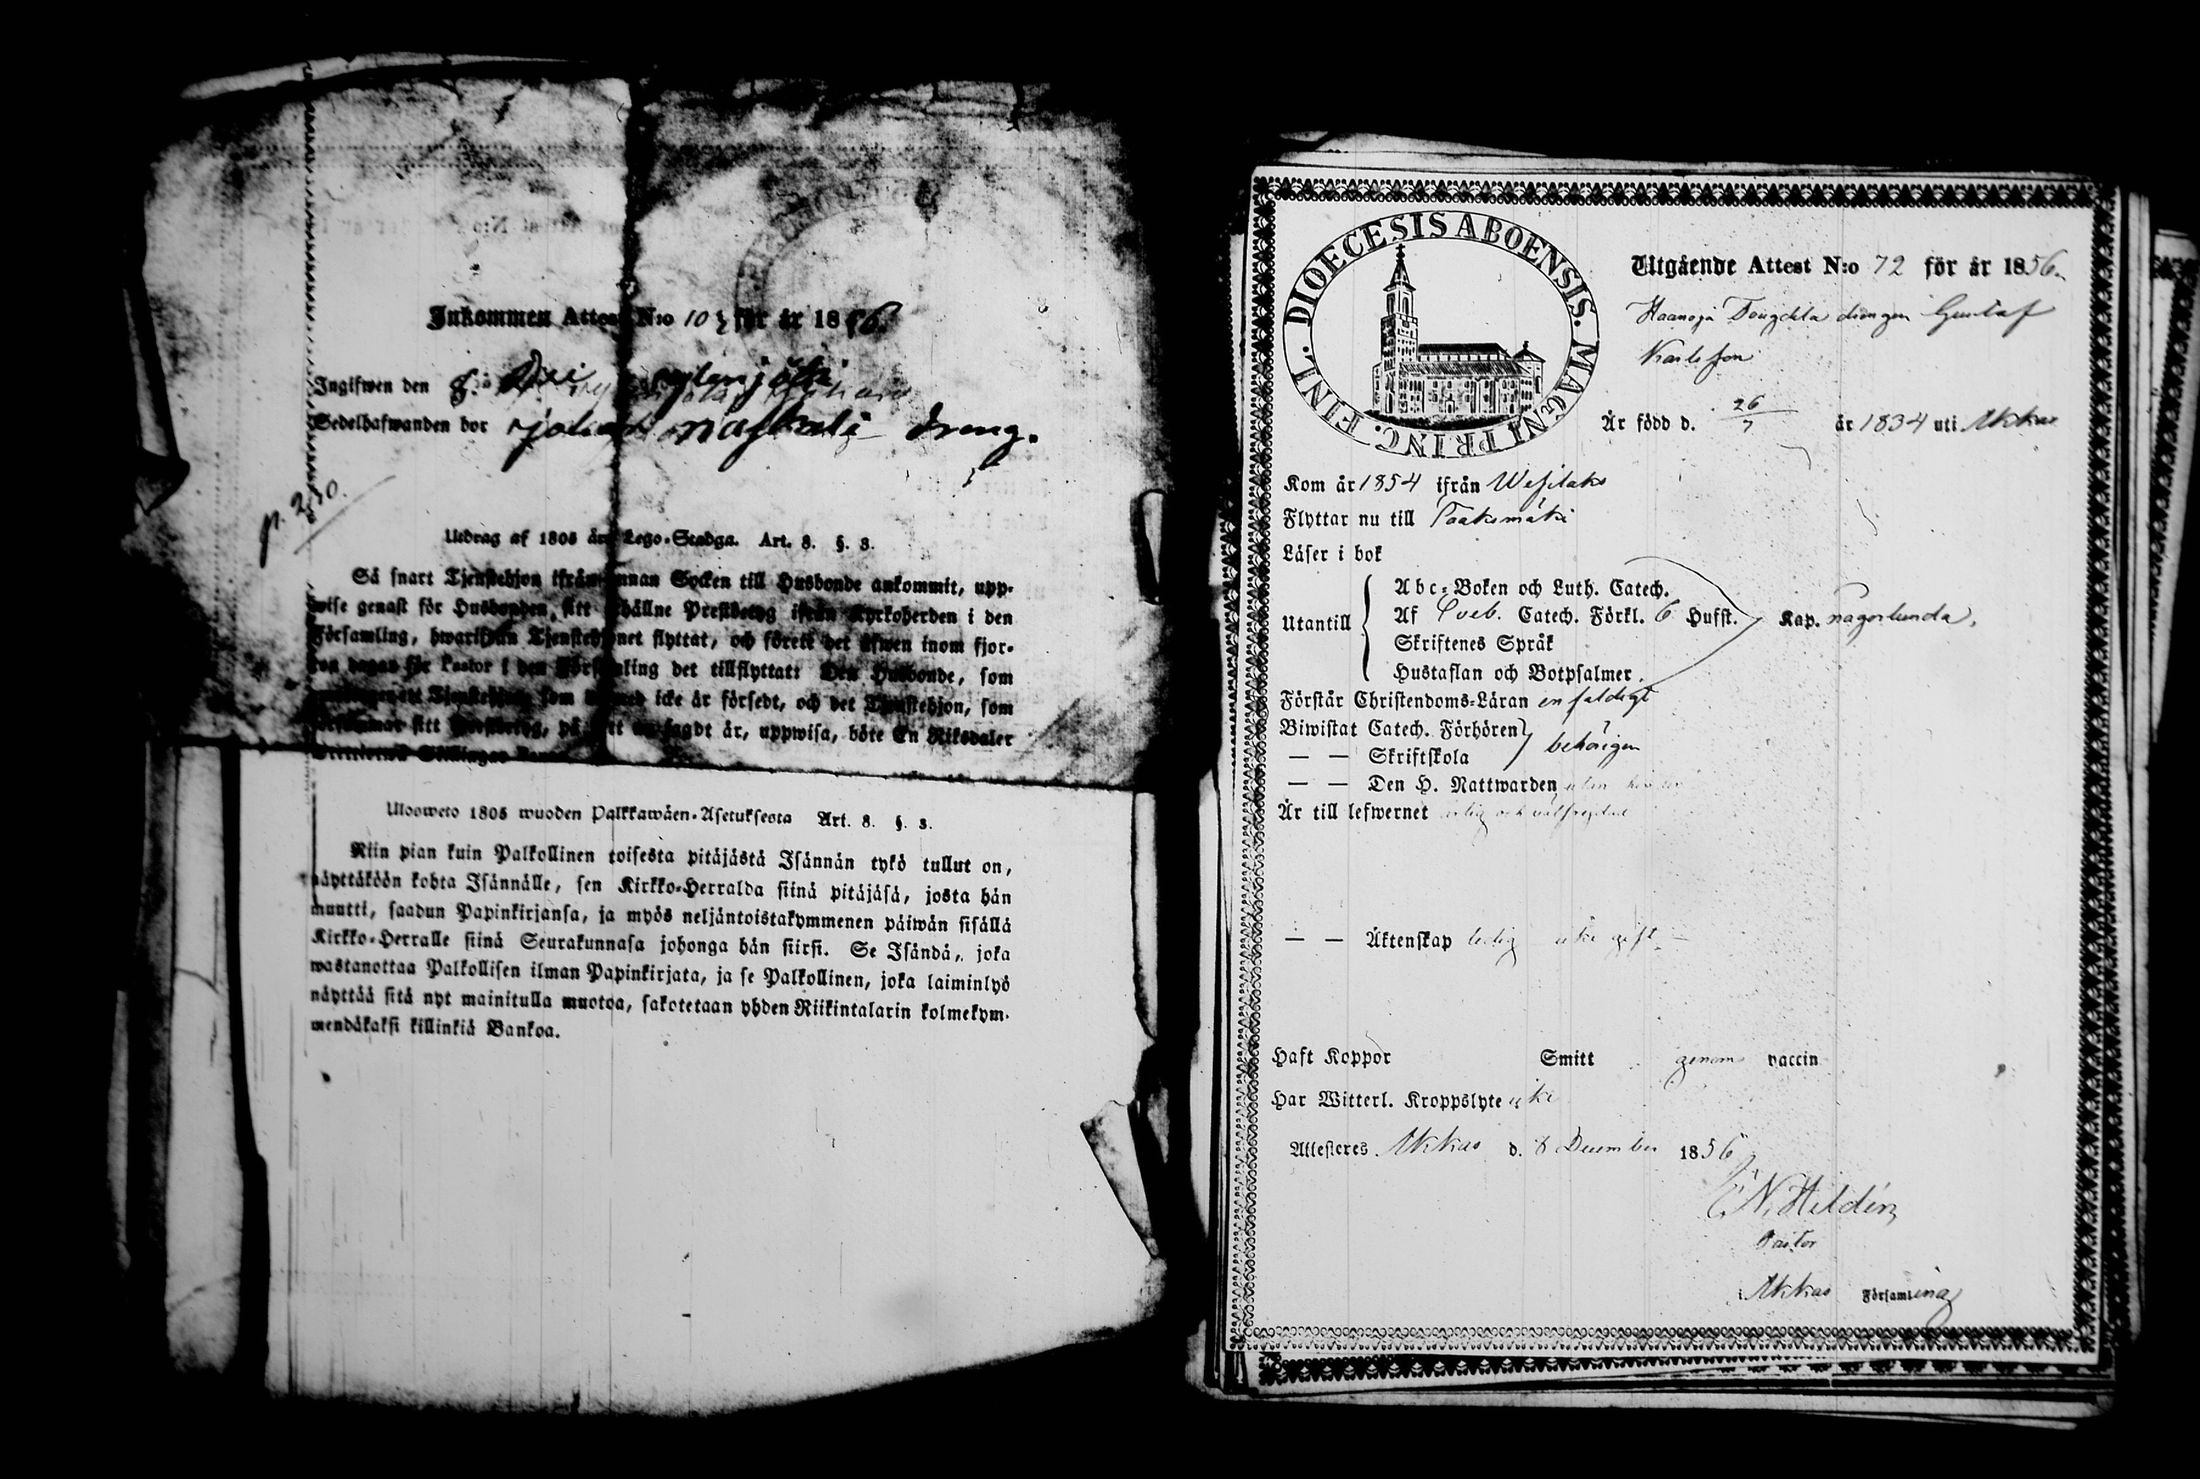 Inkommen Attest N:o 103 för år 1856.
Ingifwen den
Sedelhafwanden bor dreng.
p. 230.
Utdrag af 1805 års Lego-Stadga. Art. 8. §. 3.
Så snart Tjenstehjon ifrån annan Socken till Husbonde ankommit, upp-
wise genast för Husbonden, sitt erhållne Prestbetyg ifrån Kyrkoherden i den
Församling, hwarifrån Tjenstehjonet flyttat, och förete det äfwen inom fjor-
ton dagar för Pastor i den Församling det tillflyttat: Den Husbonde, som
Tjenstehjon som icke är försedt, och det Tjenstehjon, som
sitt Prestbetyg, på sätt nu sagdt är, uppwisa, böte En Riksdaler
Ulosweto 1805 wuoden Palkkawäen-Asetuksesta Art. 8. §. 3.
Niin pian kuin Palkollinen toisesta pitäjästä Isännän tykö tullut on,
näyttäköön kohta Isännälle, sen Kirkko-Herralda siinä pitäjäsä, josta hän
muutti, saadun Papinkirjansa, ja myös neljäntoistakymmenen päiwän sisällä
Kirkko-Herralle siinä Seurakunnasa johonga hän siirsi. Se Isändä, joka
wastanottaa Palkollisen ilman Papinkirjata, ja se Palkollinen, joka laiminlyö
näyttää sitä nyt mainitulla muotoa, sakotetaan yhden Riikintalarin kolmekym-
mendäkaksi killinkiä Bankoa.
DIOECESIS ABOENSIS. MAGNI PRINC. FINL.
Utgående Attest N:o 72 för år 1856.
drengen Gustaf
Karlsson
Är född d. 26/7 år 1834 uti Akkas
Kom år 1854 ifrån Wesilaks
Flyttar nu till
Läser i bok
Utantill
Abc-Boken och Luth. Catech.
Af Sveb. Catech. Förkl. 6 Hufst. Kap. någorlunda.
Skriftenes Språk
Hustaflan och Botpsalmer.
Förstår Christendoms-Läran enfaldigt
Biwistat Catech. Förhören
— — Skriftskola behörigen
— — Den H. Nattwarden utan
Är till lefwernet ärlig och välfrejdad
— — Äktenskap ledig icke gift
Haft Koppor Smitt genom vaccin
Har Witterl. Kroppslyte icke
Attesteres Akkas d. 8 December 1856
Hildén
Pastor
i Akkas Församling